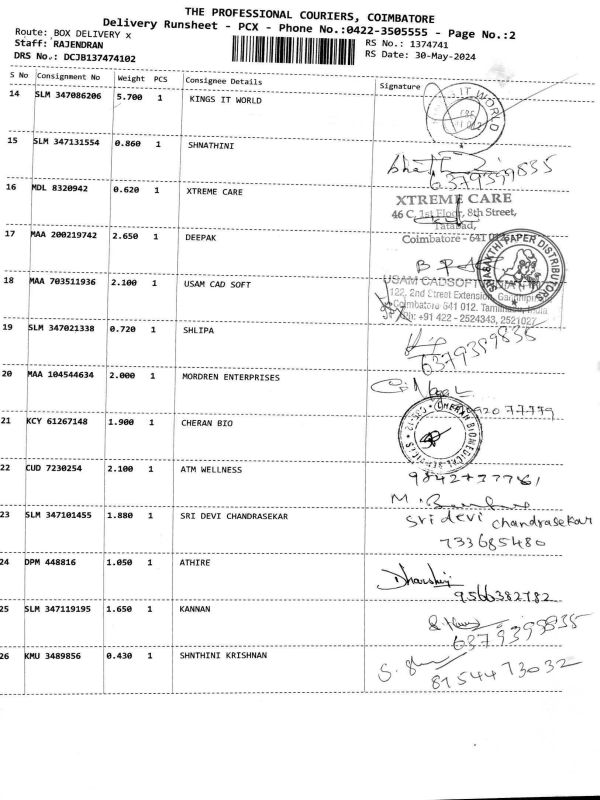 THE PROFESSIONAL COURIERS, COIMBATORE
Delivery Runsheet - PCX - Phone No.:0422-3505555 - Page No.:2
Route: BOX DELIVERY x
Staff: RAJENDRAN RS No.: 1374741
DRS No.: DCJB137474102 RS Date: 30-May-2024
S No Consignment No Weight PCS Consignee Details Signature
14 SLM 347086206 5.700 1 KINGS IT WORLD
IT WORLD
15 SLM 347131554 0.860 1 SHNATHINI
6379399835
16 MDL 8320942 0.620 1 XTREME CARE
XTREME CARE
46 C, 1st Floor, 8th Street,
Tatabad,
Coimbatore - 641 012.
17 MAA 200219742 2.650 1 DEEPAK
PAPER DISTRIBUTORS
18 MAA 703511936 2.100 1 USAM CAD SOFT
USAM CADSOFT
122, 2nd Street Extension,
Coimbatore 641 012. Tamilnadu, India
Ph: +91 422 - 2524343, 2521027
19 SLM 347021338 0.720 1 SHLIPA
6379399835
20 MAA 104544634 2.000 1 MORDREN ENTERPRISES
92077779
21 KCY 61267148 1.900 1 CHERAN BIO
CHERAN BIOMEDICAL
22 CUD 7230254 2.100 1 ATM WELLNESS
9842+77761
M.
23 SLM 347101455 1.880 1 SRI DEVI CHANDRASEKAR
sri devi chandrasekar
733685480
24 DPM 448816 1.050 1 ATHIRE
Dharshini
9566382782
25 SLM 347119195 1.650 1 KANNAN
6379399835
26 KMU 3489856 0.430 1 SHNTHINI KRISHNAN
8754473032